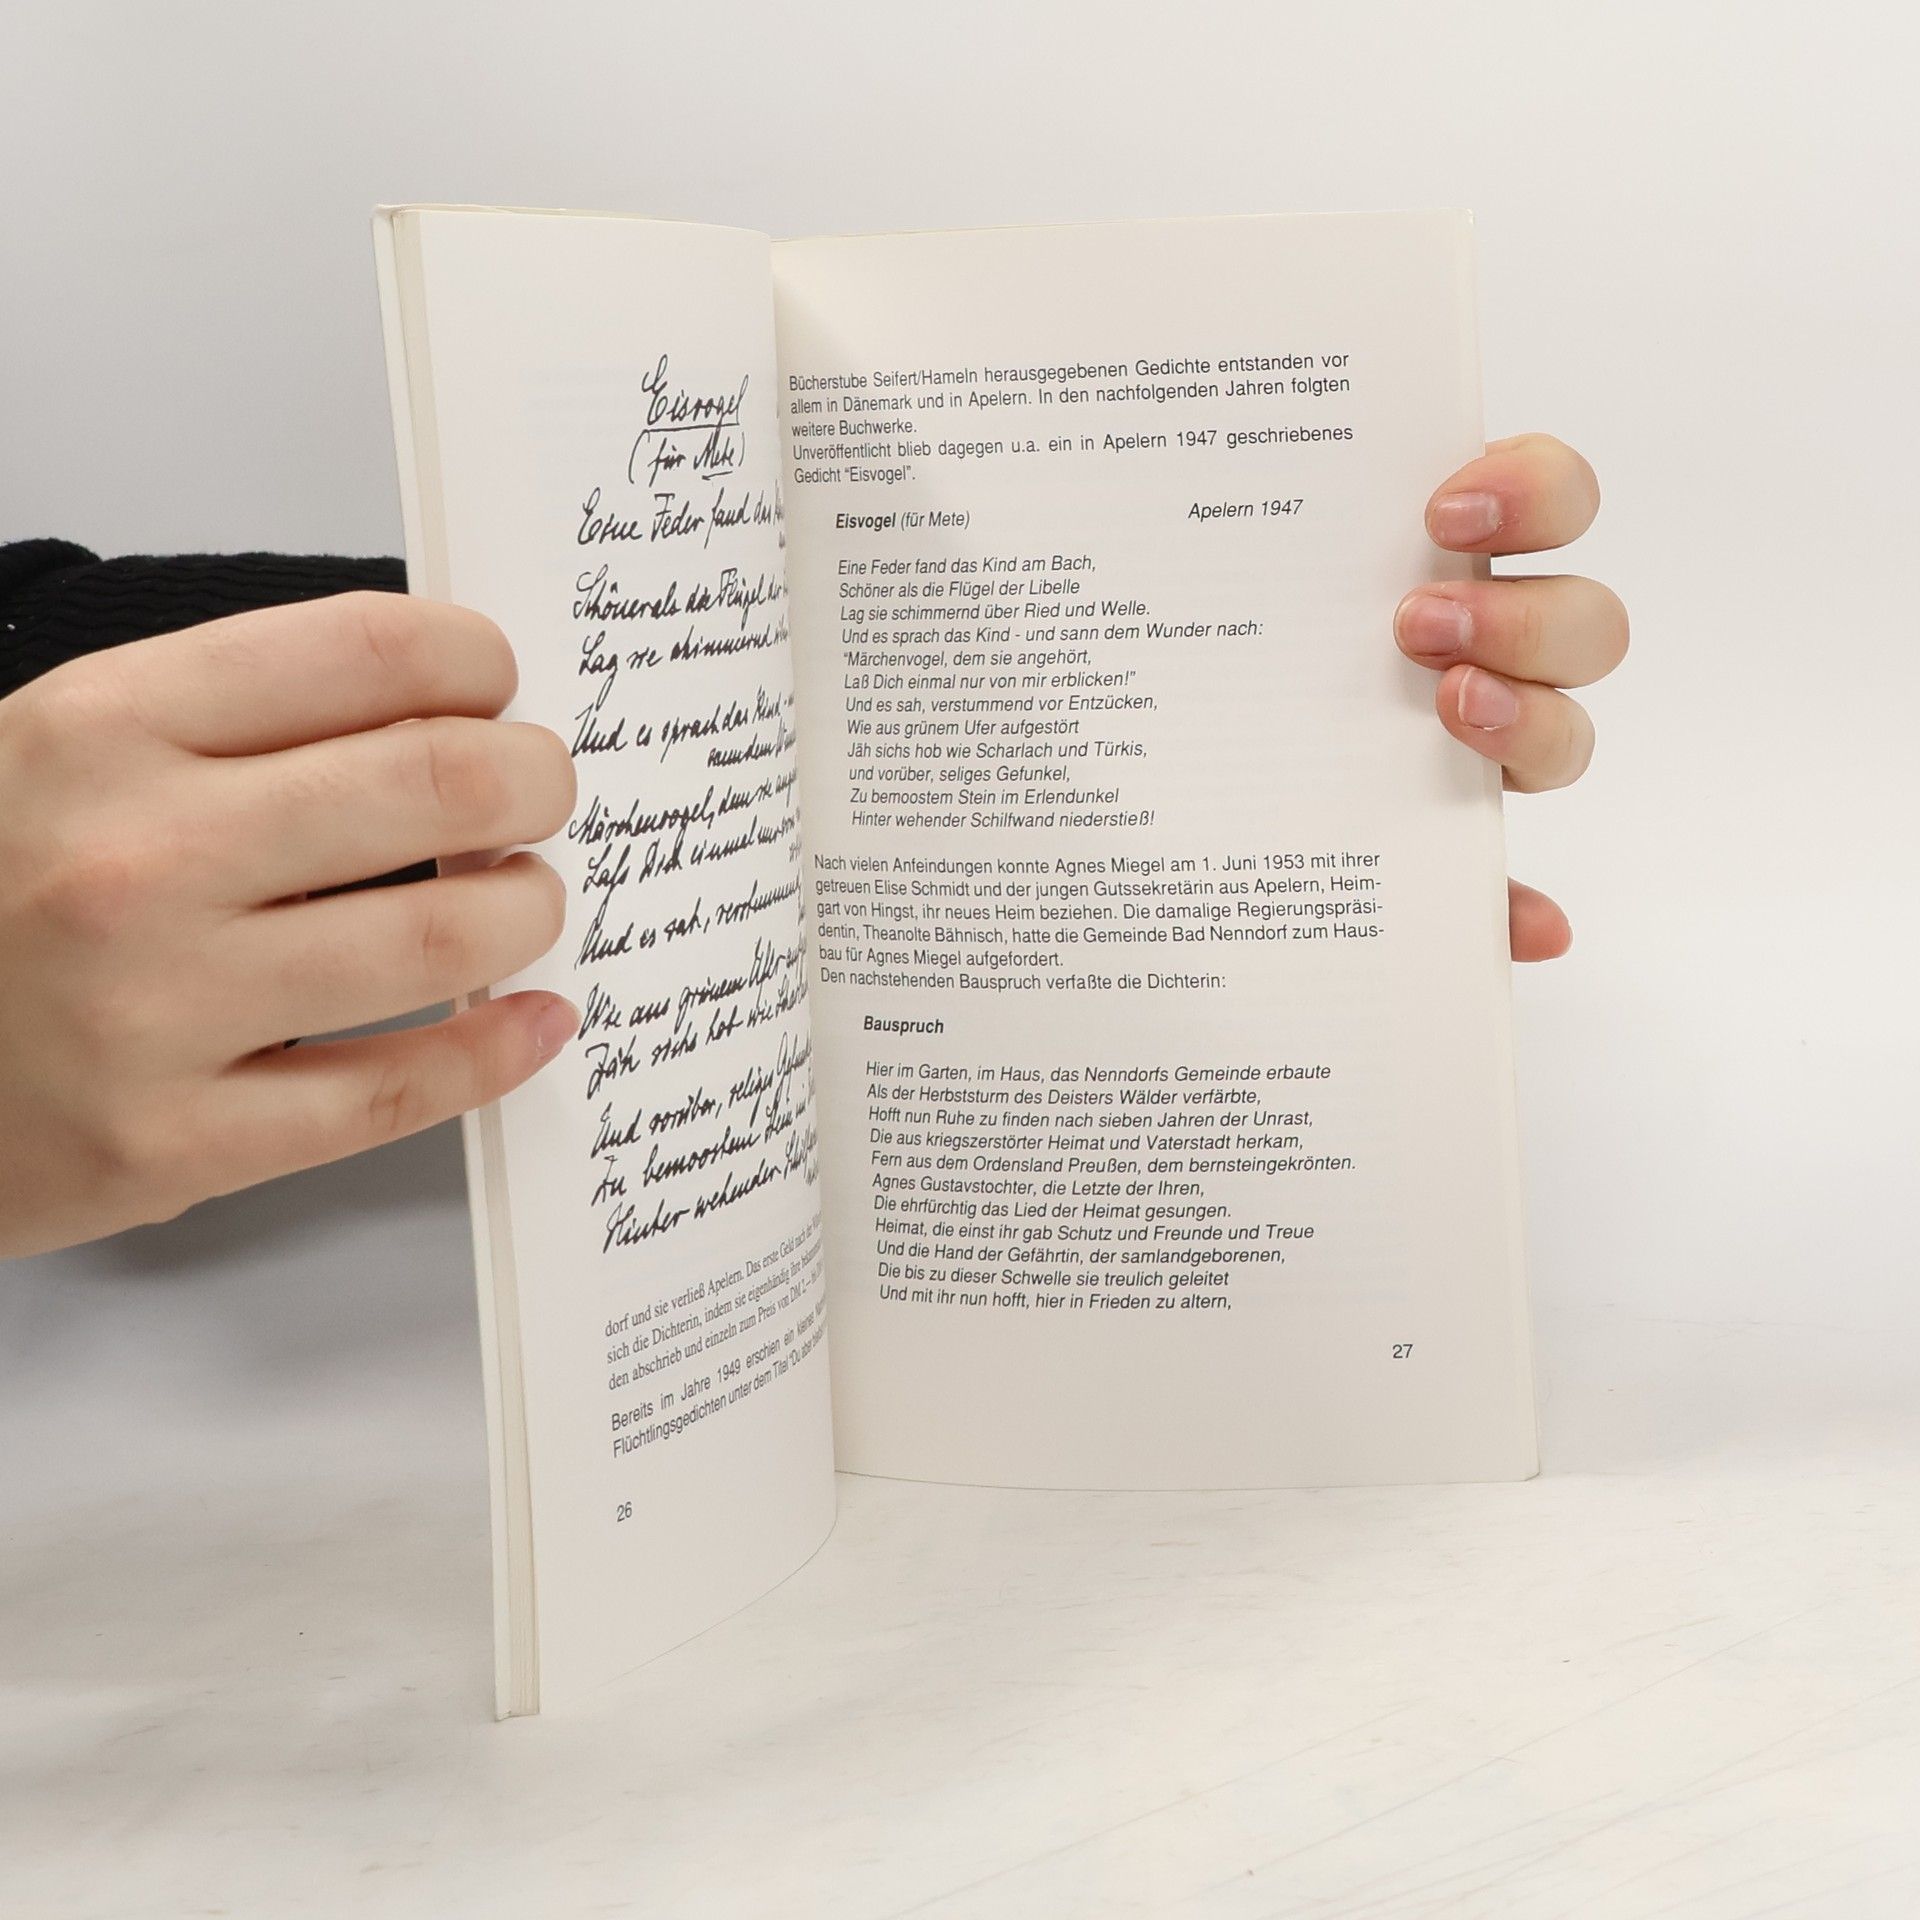 Eisvogel
(für Mete)
Eine Feder fand das
Schöner als die Flügel der
Lag sie schimmernd
Und es sprach das Kind -
sann dem
Märchenvogel, dem sie
Laß Dich einmal nur von
Und es sah, verstummend
Wie aus grünem Ufer
Jäh sichs hob wie
Und vorüber, seliges
Zu bemoostem Stein im
Hinter wehender
dorf und sie verließ Apelern. Das erste Geld nach der
sich die Dichterin, indem sie eigenhändig ihre
den abschrieb und einzeln zum Preis von DM 2.—
Bereits im Jahre 1949 erschien ein kleiner
Flüchtlingsgedichten unter dem Titel "Du aber
26
Bücherstube Seifert/Hameln herausgegebenen Gedichte entstanden vor
allem in Dänemark und in Apelern. In den nachfolgenden Jahren folgten
weitere Buchwerke.
Unveröffentlicht blieb dagegen u.a. ein in Apelern 1947 geschriebenes
Gedicht "Eisvogel".
Eisvogel (für Mete) Apelern 1947
Eine Feder fand das Kind am Bach,
Schöner als die Flügel der Libelle
Lag sie schimmernd über Ried und Welle.
Und es sprach das Kind - und sann dem Wunder nach:
"Märchenvogel, dem sie angehört,
Laß Dich einmal nur von mir erblicken!"
Und es sah, verstummend vor Entzücken,
Wie aus grünem Ufer aufgestört
Jäh sichs hob wie Scharlach und Türkis,
und vorüber, seliges Gefunkel,
Zu bemoostem Stein im Erlendunkel
Hinter wehender Schilfwand niederstieß!
Nach vielen Anfeindungen konnte Agnes Miegel am 1. Juni 1953 mit ihrer
getreuen Elise Schmidt und der jungen Gutssekretärin aus Apelern, Heim-
gart von Hingst, ihr neues Heim beziehen. Die damalige Regierungspräsi-
dentin, Theanolte Bähnisch, hatte die Gemeinde Bad Nenndorf zum Haus-
bau für Agnes Miegel aufgefordert.
Den nachstehenden Bauspruch verfaßte die Dichterin:
Bauspruch
Hier im Garten, im Haus, das Nenndorfs Gemeinde erbaute
Als der Herbststurm des Deisters Wälder verfärbte,
Hofft nun Ruhe zu finden nach sieben Jahren der Unrast,
Die aus kriegszerstörter Heimat und Vaterstadt herkam,
Fern aus dem Ordensland Preußen, dem bernsteingekrönten.
Agnes Gustavstochter, die Letzte der Ihren,
Die ehrfürchtig das Lied der Heimat gesungen.
Heimat, die einst ihr gab Schutz und Freunde und Treue
Und die Hand der Gefährtin, der samlandgeborenen,
Die bis zu dieser Schwelle sie treulich geleitet
Und mit ihr nun hofft, hier in Frieden zu altern,
27